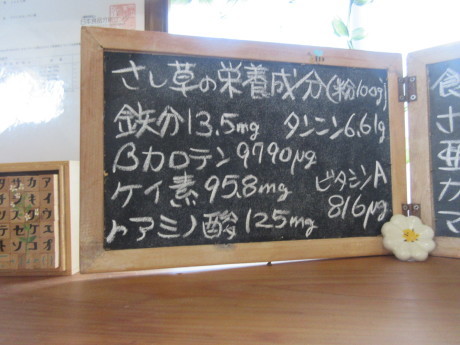 さし草の栄養成分(粉100g)
鉄分13.5mg タンニン6.61g
βカロテン9790μg
ケイ素95.8mg ビタミンA 816μg
アミノ酸125mg
食
さ
亜
カ
マ
サカア
シキイ
スクウ
セケエ
ソコオ